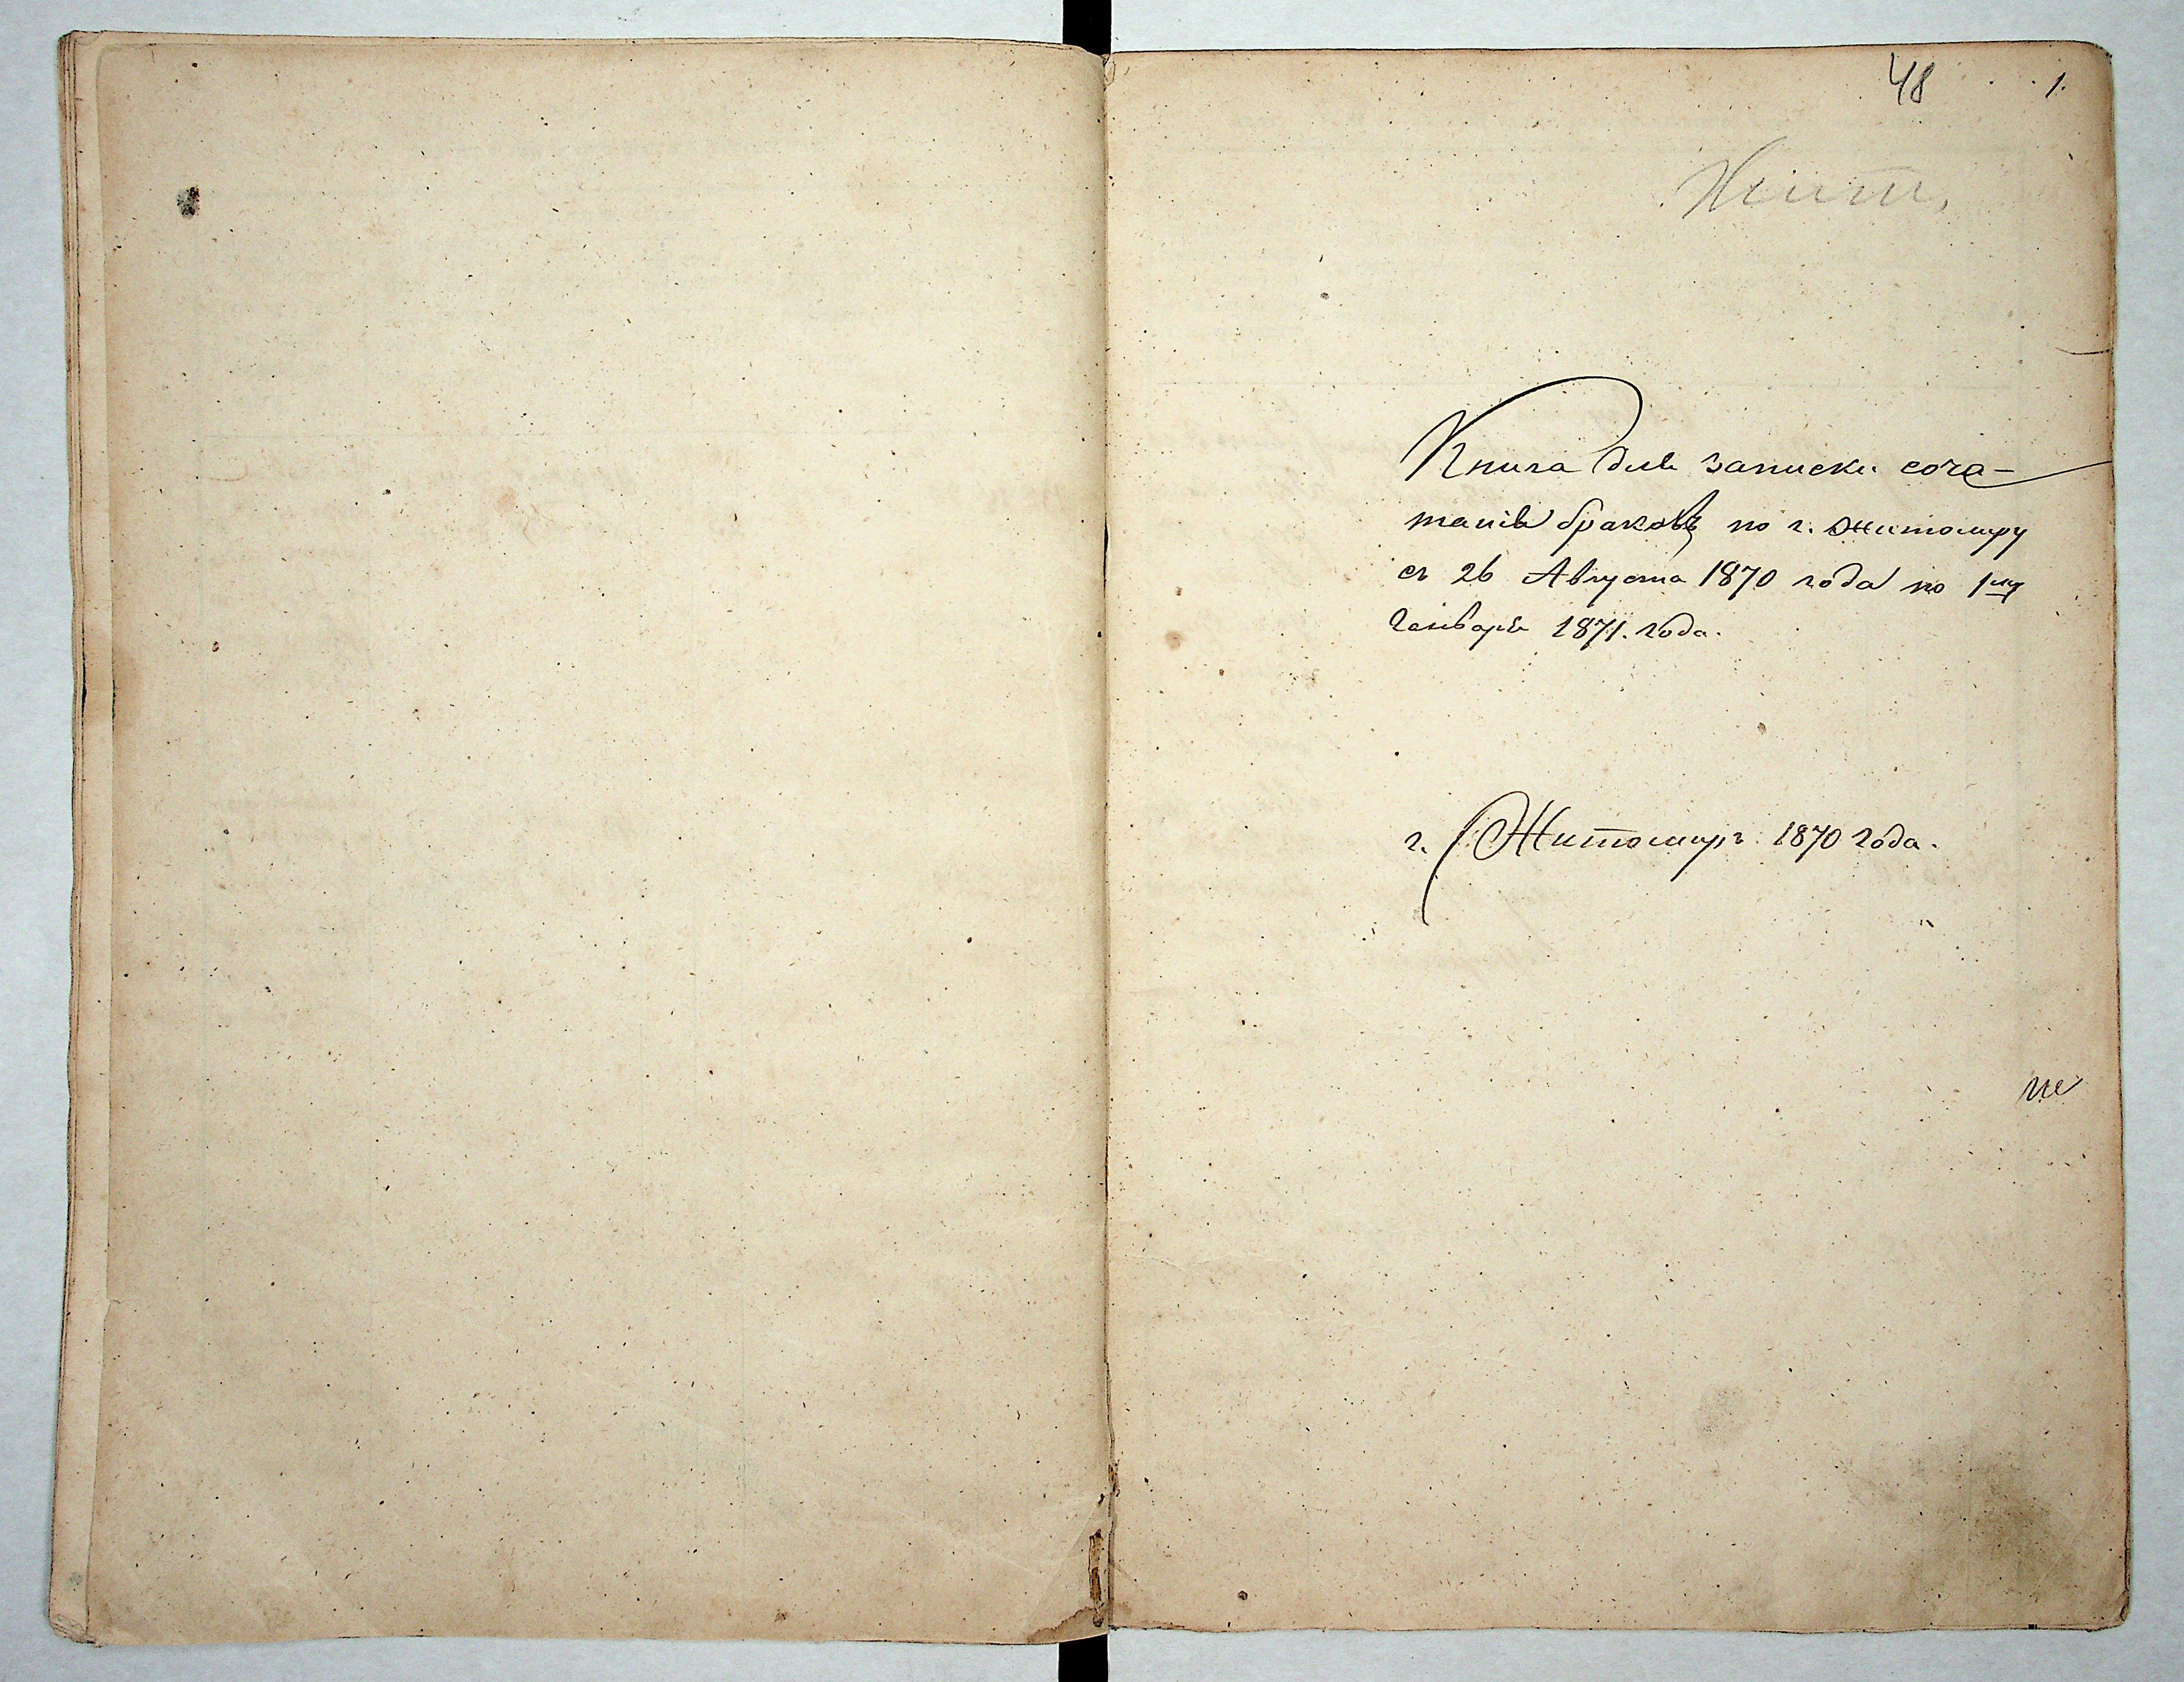 48 1.
Жит.
Книга для записки соче-
танія браковъ по г. Житомиру
съ 26 Августа 1870 года по 1му
Генваря 1871. года.
г. Житомиръ 1870 года.